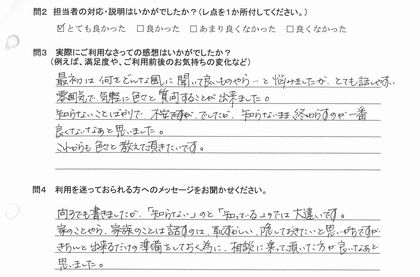 問2 担当者の対応・説明はいかがでしたか?(レ点を1か所付してください。)
☑とても良かった □良かった □あまり良くなかった □良くなかった
問3 実際にご利用なさっての感想はいかがでしたか?
(例えば、満足度や、ご利用前後のお気持ちの変化など)
最初は何をどんな風に聞いて良いものやら…と悩みましたが、とても話しやすい
雰囲気で、気軽に色々と質問することが出来ました。
知らないことばかりで、不安でしたが、知らないまま終わらすのが一番
良くないなあと思いました。
これからも色々と教えて頂きたいです。
問4 利用を迷っておられる方へのメッセージをお聞かせください。
問3でも書きましたが、「知らない」のと「知っている」のでは大違いです。
家のことやら、家族のことは話すのは、恥ずかしい、隠しておきたいと思いがちですが
きちんと出来るだけの準備をしておく為に、相談に乗って頂いた方が良いなあと
思いました。